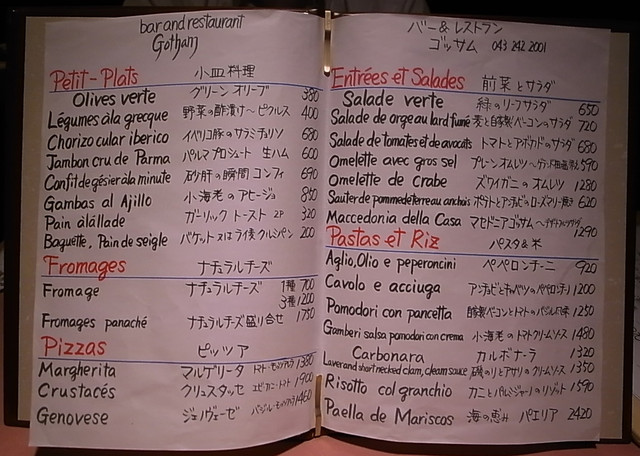 bar and restaurant
Gotham
Petit-Plats 小皿料理
Olives verte グリーン オリーブ 380
Légumes à la grecque 野菜の酢漬け〜ピクルス 400
Chorizo cular iberico イベリコ豚のサラミチョリソ 680
Jambon cru de Parma パルマプロシュート 生ハム 600
Confit de gésier à la minute 砂肝の瞬間コンフィ 690
Gambas al Ajillo 小海老のアヒージョ 850
Pain à lállade ガーリックトースト 2P 320
Baguette, Pain de seigle バケット又はライ麦クルミパン 200
Fromages ナチュラルチーズ
Fromage ナチュラルチーズ 1種 700
3種 1200
Fromages panaché ナチュラルチーズ盛り合せ 1750
Pizzas ピッツァ
Margherita マルゲリータ 1380
Crustacés クリュスタッセ エビ・カニ・トマト 1900
Genovese ジェノヴェーゼ 1460
バー & レストラン
ゴッサム 043 242 2001
Entrées et Salades 前菜とサラダ
Salade verte 緑のリーフサラダ 650
Salade de orge au lard fumé 麦と自家製ベーコンのサラダ 720
Salade de tomates et de avocats トマトとアボカドのサラダ 680
Omelette avec gros sel プレーンオムレツ 590
Omelette de crabe ズワイガニのオムレツ 1280
Sauter de pomme de terre au anchois ポテトとアンチョビのローズマリー焼き 620
Maccedonia della Casa マセドニアゴッサム 1290
Pastas et Riz パスタ & 米
Aglio, Olio e peperoncini ペペロンチーニ 920
Cavolo e acciuga アンチョビとキャベツのペペロンチーノ 1200
Pomodori con pancetta 自家製ベーコンとトマト 1250
Gamberi salsa pomodori con crema 小海老のトマトクリームソース 1480
Carbonara カルボナーラ 1320
Laver and short necked clam, cleam sauce 磯のりとアサリのクリームソース 1350
Risotto col granchio カニとパルミジャーノのリゾット 1590
Paella de Mariscos 海の恵み パエリア 2420